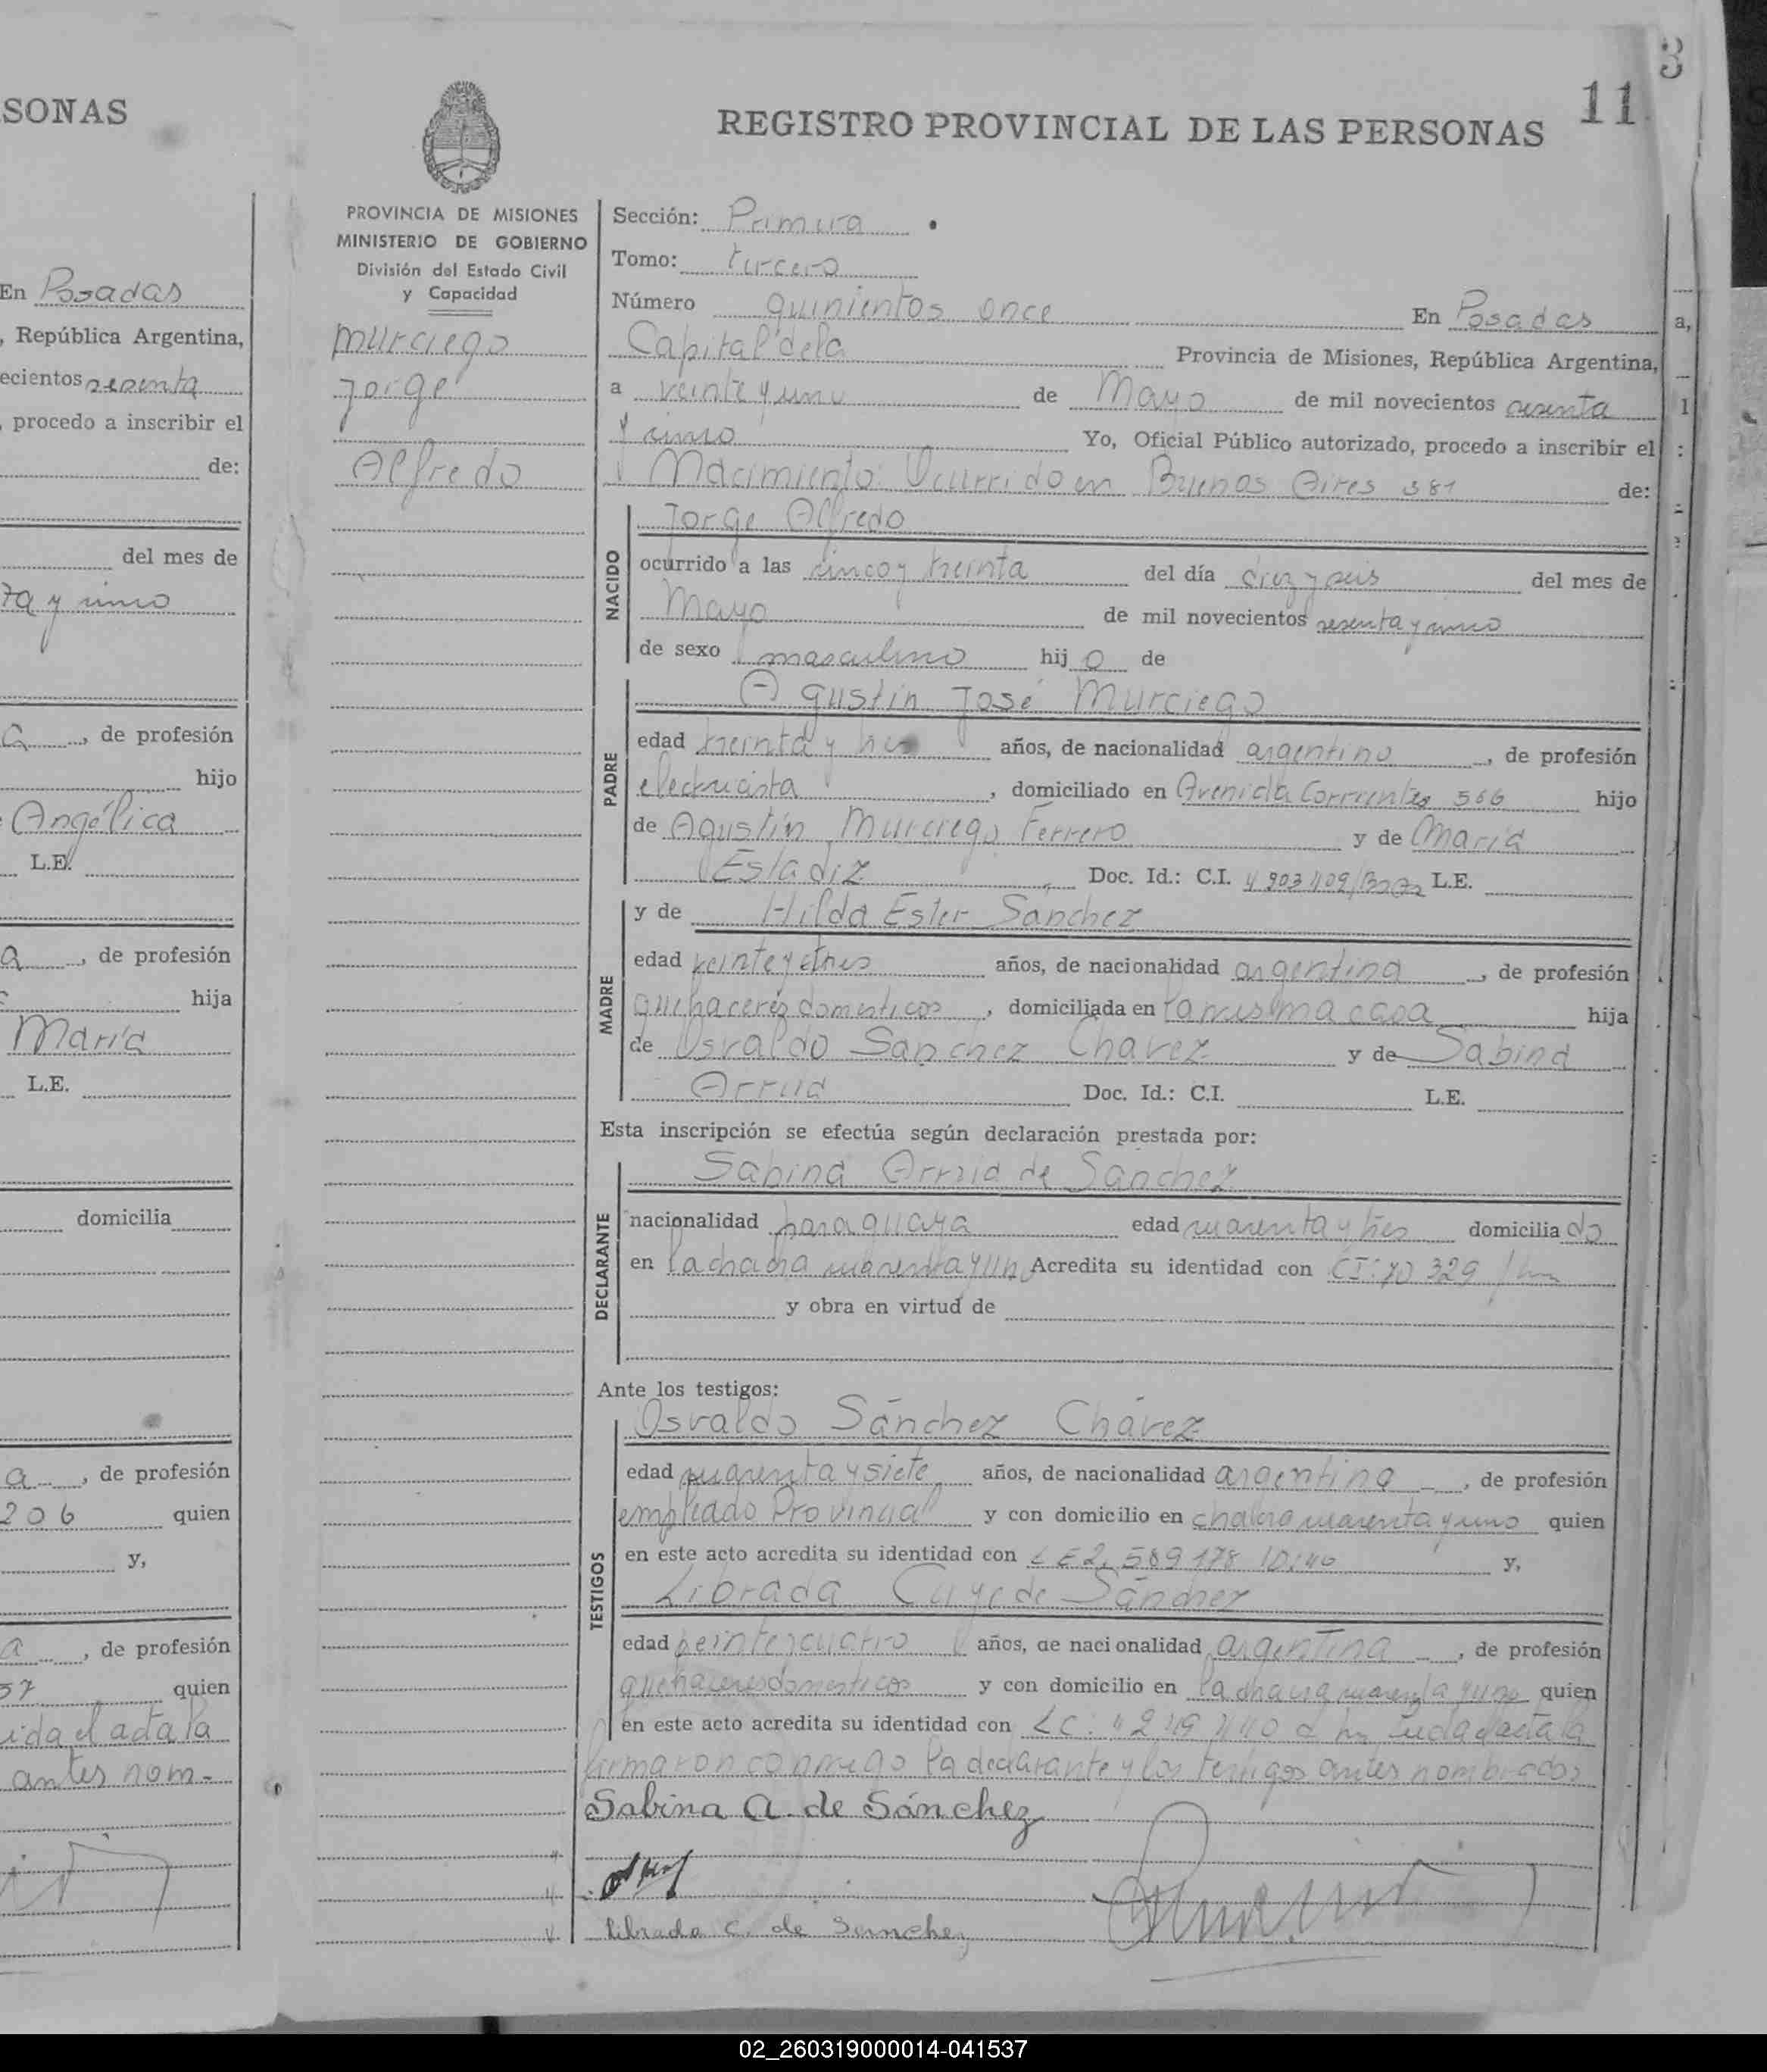 SONAS
En Posadas
, República Argentina,
ecientos sesenta
, procedo a inscribir el
de:
del mes de
ta y uno
a, de profesión
hijo
Angélica
L.E.
a, de profesión
hija
María
L.E.
domicilia
a, de profesión
206 quien
y,
a, de profesión
57 quien
ida el acta la
antes nom-
3
11
REGISTRO PROVINCIAL DE LAS PERSONAS
PROVINCIA DE MISIONES
MINISTERIO DE GOBIERNO
División del Estado Civil
y Capacidad
Murciego
Jorge
Alfredo
Sección: Primera
Tomo: tercero
Número quinientos once En Posadas
Capital de la Provincia de Misiones, República Argentina,
a veinte y uno de Mayo de mil novecientos sesenta
y uno Yo, Oficial Público autorizado, procedo a inscribir el
Nacimiento Ocurrido en Buenos Aires 381 de:
NACIDO
Jorge Alfredo
ocurrido a las cinco y treinta del día diez y seis del mes de
Mayo de mil novecientos sesenta y uno
de sexo masculino hijo de
PADRE
Agustín José Murciego
edad treinta y tres años, de nacionalidad argentino, de profesión
electricista, domiciliado en Avenida Corrientes 566 hijo
de Agustín Murciego Ferrero y de María
Estadiz Doc. Id.: C.I. L.E.
MADRE
y de Hilda Ester Sánchez
edad veinte y tres años, de nacionalidad argentina, de profesión
quehaceres domesticos, domiciliada en la misma casa hija
de Osvaldo Sánchez Chavez y de Sabina
Arrua Doc. Id.: C.I. L.E.
Esta inscripción se efectúa según declaración prestada por:
DECLARANTE
Sabina Arrua de Sánchez
nacionalidad paraguaya edad cuarenta y tres domiciliado
en la chacra cuarenta y un Acredita su identidad con CI: 329
y obra en virtud de
Ante los testigos:
TESTIGOS
Osvaldo Sánchez Chávez
edad cuarenta y siete años, de nacionalidad argentina, de profesión
empleado Provincial y con domicilio en chacra cuarenta y uno quien
en este acto acredita su identidad con LE 2.589178 y,
Librada de Sánchez
edad veinte y cuatro años, de nacionalidad argentina, de profesión
quehaceres domesticos y con domicilio en la chacra cuarenta y uno quien
en este acto acredita su identidad con LC: leida el acta la
firmaron conmigo la declarante y los testigos antes nombrados
Sabina A. de Sánchez
Librada C. de Sanchez
02_260319000014-041537